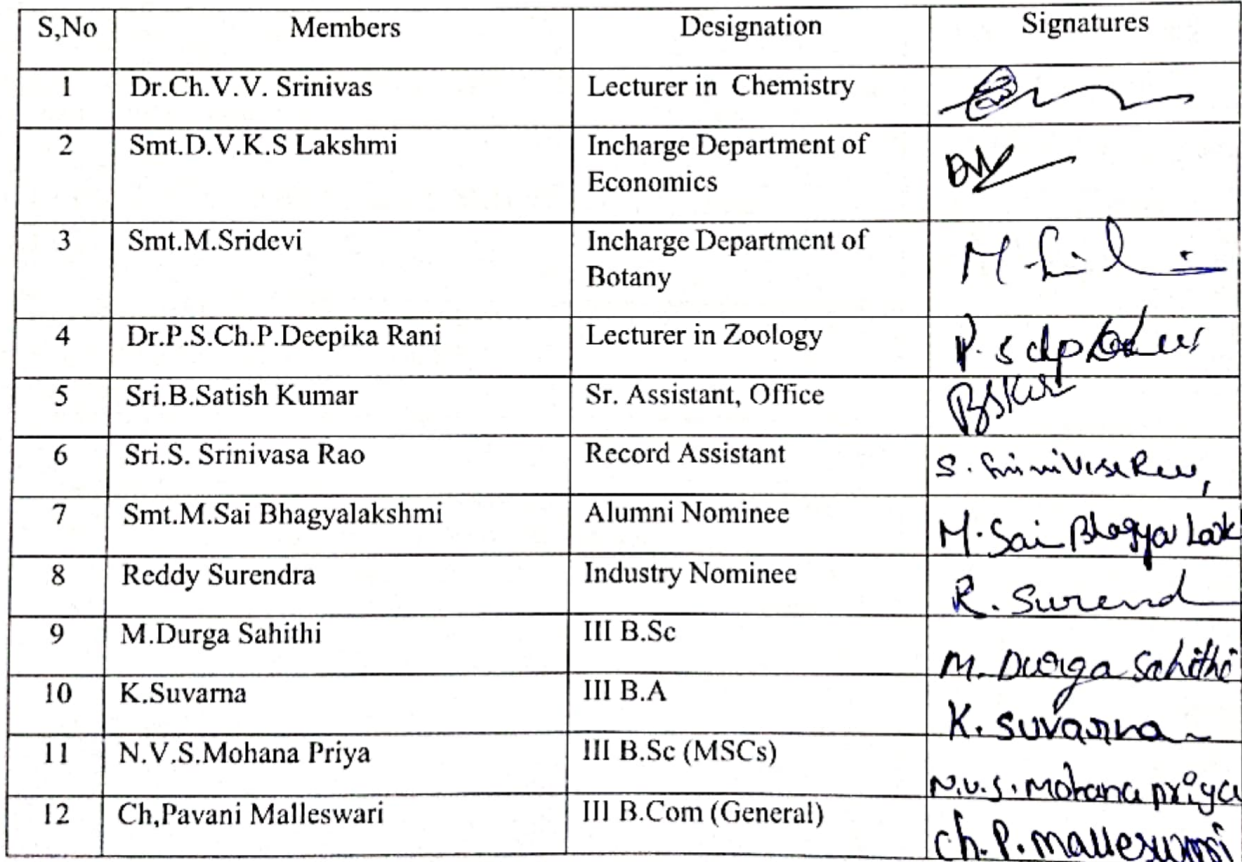 S,No Members Designation Signatures
1 Dr.Ch.V.V. Srinivas Lecturer in Chemistry
2 Smt.D.V.K.S Lakshmi Incharge Department of
Economics
3 Smt.M.Sridevi Incharge Department of
Botany
M
4 Dr.P.S.Ch.P.Deepika Rani Lecturer in Zoology
5 Sri.B.Satish Kumar Sr. Assistant, Office
6 Sri.S. Srinivasa Rao Record Assistant
S.
7 Smt.M.Sai Bhagyalakshmi Alumni Nominee M. Sai Bhagya Lak
8 Reddy Surendra Industry Nominee R. Surend
9 M.Durga Sahithi III B.Sc M. Durga Sahithi
10 K.Suvarna III B.A K. Suvarna
11 N.V.S.Mohana Priya III B.Sc (MSCs) N.V.S. Mohana priya
12 Ch,Pavani Malleswari III B.Com (General) Ch. P. Malleswari